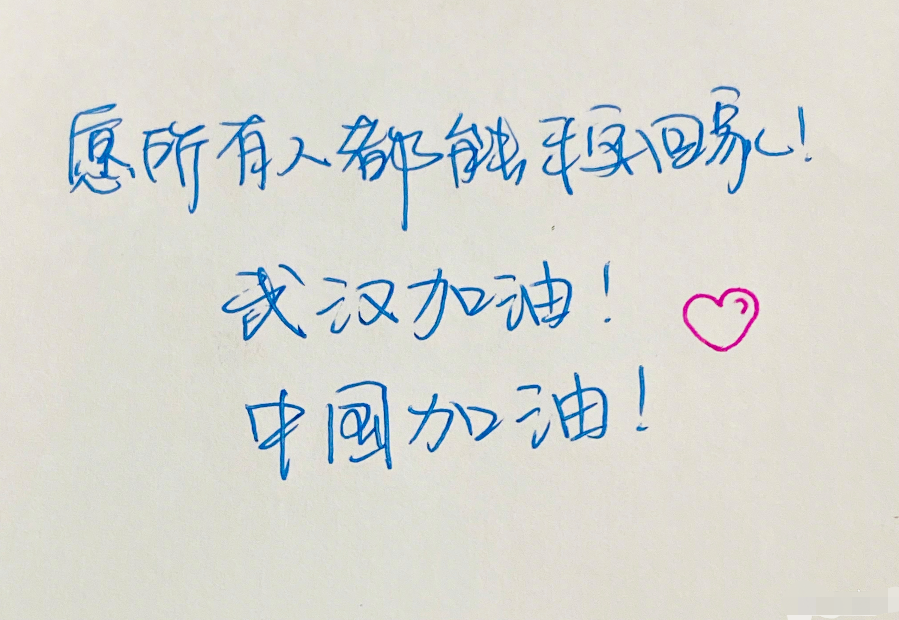 愿所有人都能平安回家！
武汉加油！
中国加油！